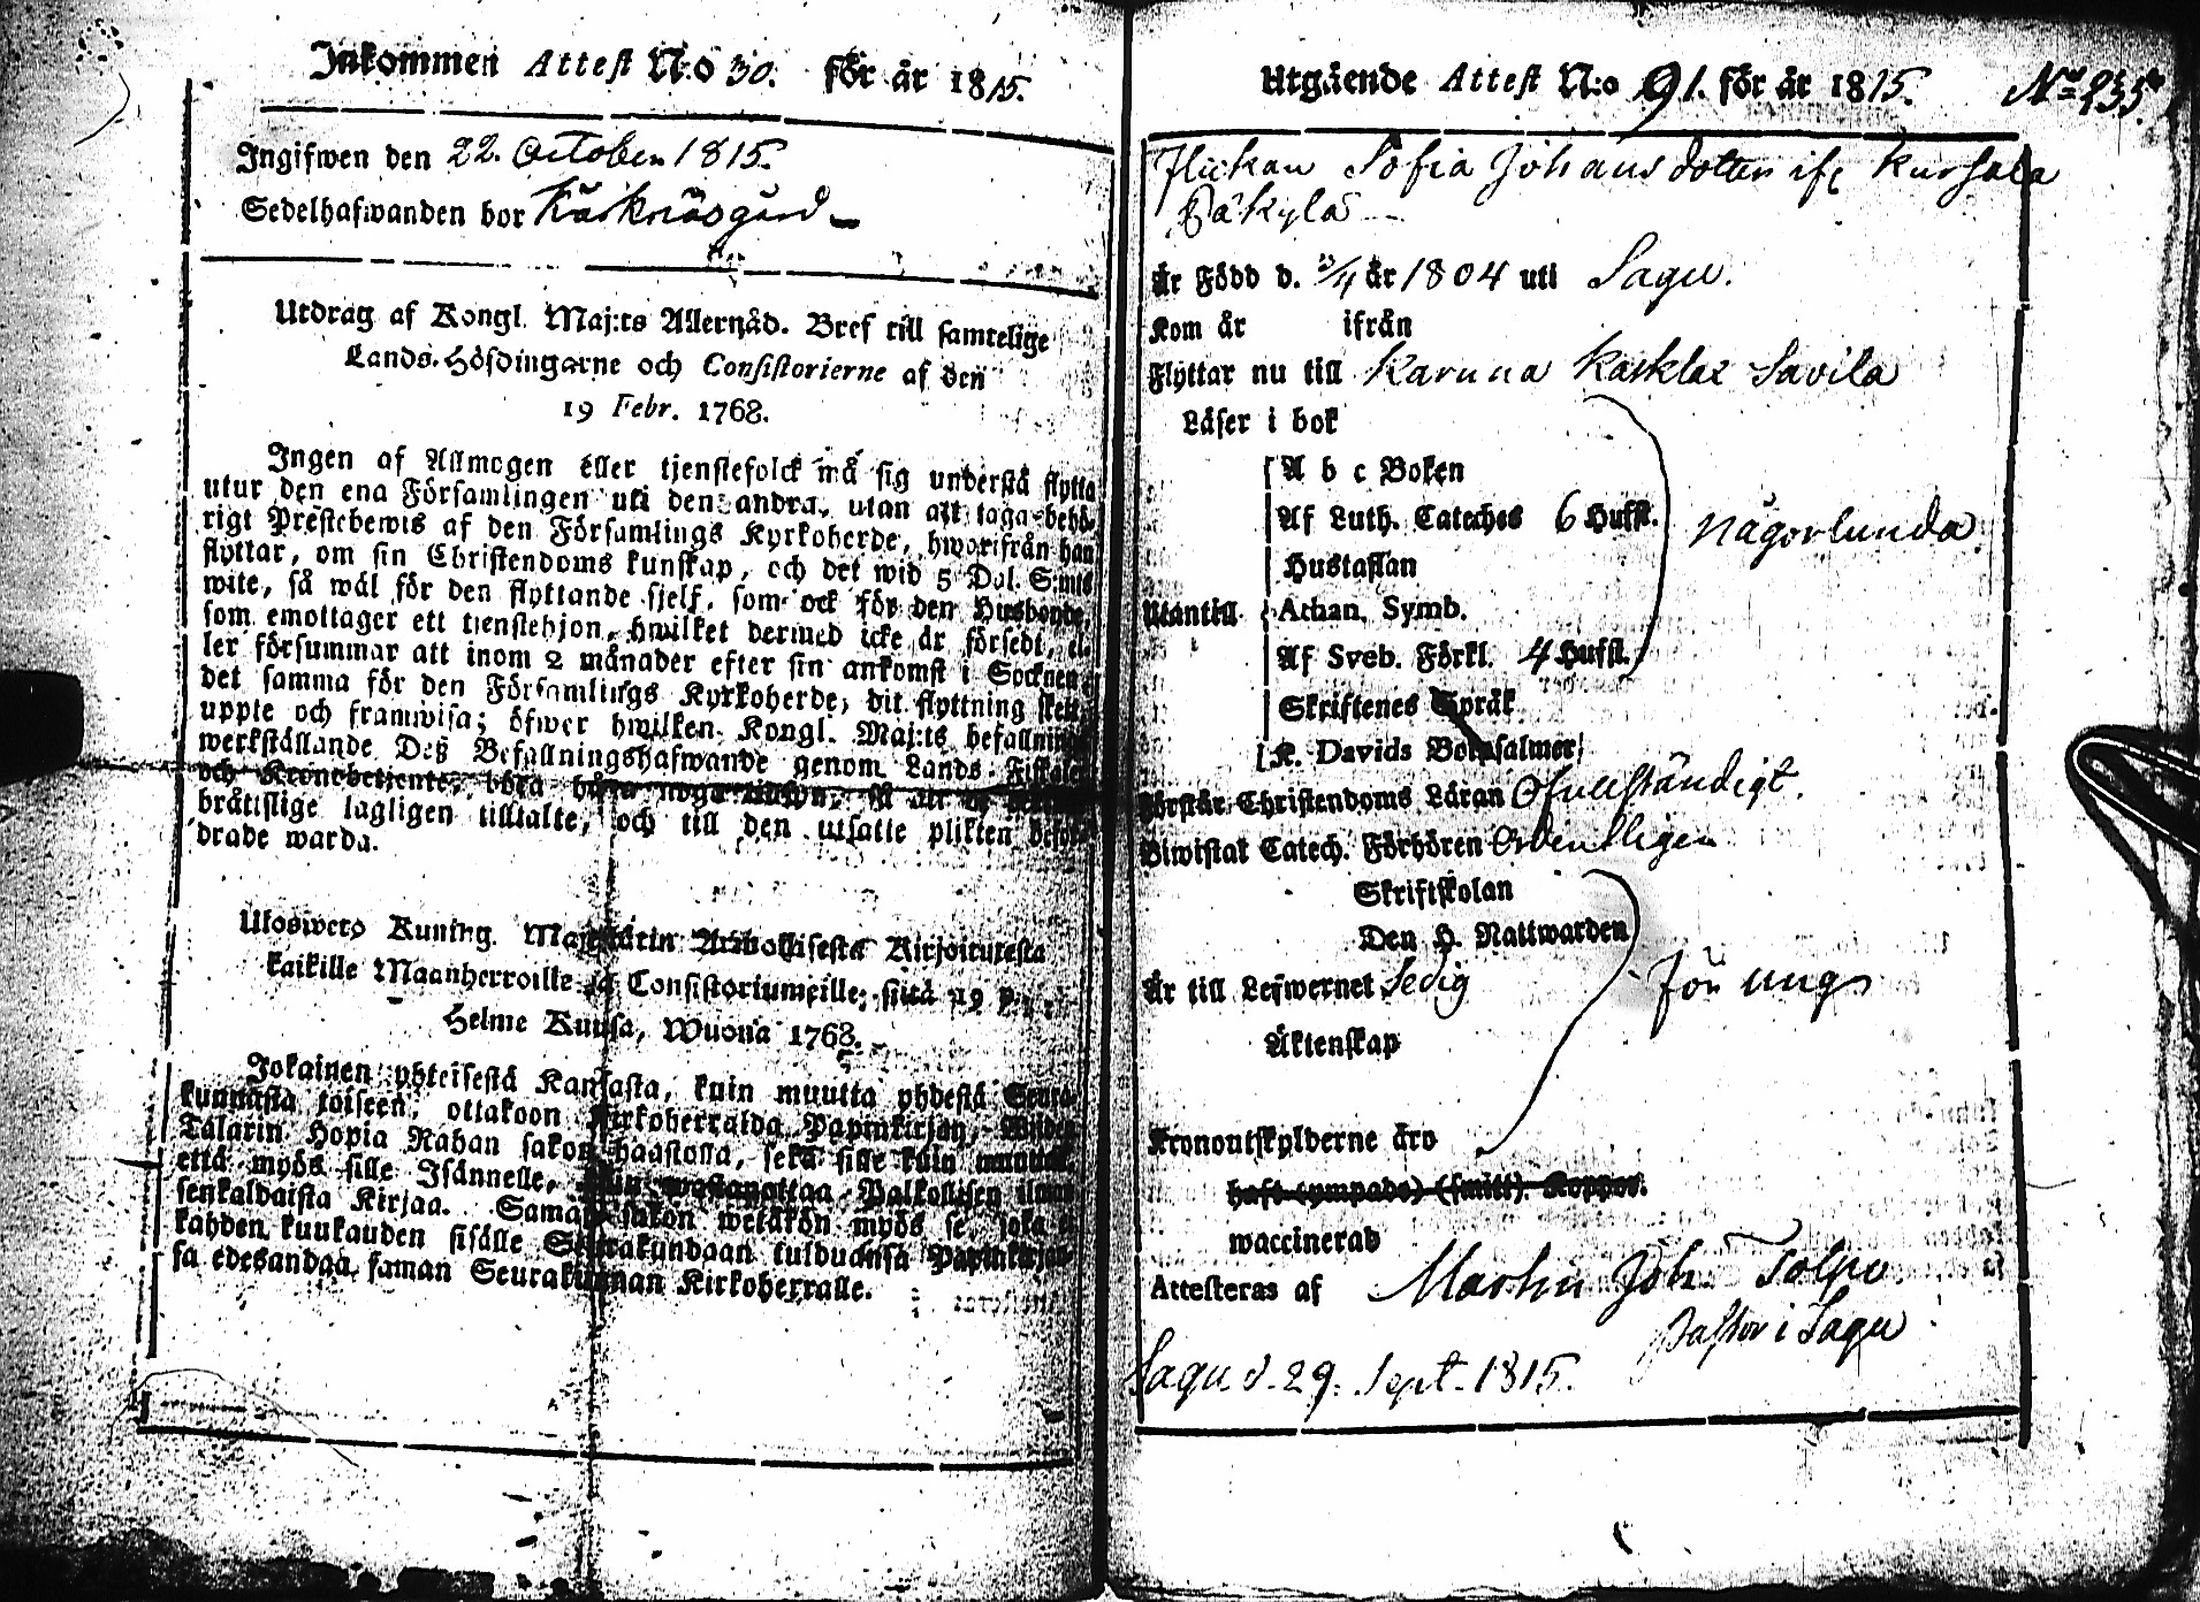 Inkommen Attest N:o 30. för år 1815.
Ingifwen den 22. October 1815.
Sedelhafwanden bor Karknäsgård
Utdrag af Kongl. Maj:ts Allernåd. Bref till samtelige
Lands-Höfdingarne och Consistorierne af den
19 Febr. 1768.
Ingen af Allmogen eller tjenstefolck må sig understå flytta
utur den ena Församlingen uti den andra, utan att taga behö-
rigt Prestebewis af den Församlings Kyrkoherde, hworifrån han
flyttar, om sin Christendoms kunskap, och det wid 5 Dal. S:mts
wite, så wäl för den flyttande sjelf, som ock för den Husbonde,
som emottager ett tjenstehjon, hwilket dermed icke är försedt, el-
ler försummar att inom 2 månader efter sin ankomst i Socknen
det samma för den Församlings Kyrkoherde, dit flyttning skett,
uppte och framwisa; öfwer hwilken Kongl. Maj:ts befallnings
werkställande Deß Befallningshafwande genom Lands-Fiskaler
och Kronobetjente, böra hafwa noga
bråttslige lagligen tilltalte, och till den utsatte plikten befor-
drade warda.
Uloswero Kuning. Majestätin Armollisesta Kirjoituresta
kaikille Maanherroille ja Consistoriumeille, siitä 19 p:
Helme Kuusa, Wuona 1768.
Jokainen yhteisestä Kansasta, kuin muutta yhdestä Seura-
kunnasta toiseen, ottakoon Kirkoherralda Papinkirjan, Wijden
Talarin Hopia Rahan sakon haastolla, sekä sille kuin muutta,
että myös sille Isännelle, kuin wastanottaa Palkollisen ilman
senkaldaista Kirjaa. Saman sakon wetäkön myös se, joka ei
kahden kuukauden sisälle Seurakundaan tulduansa Papinkirjaan-
sa edesandaa saman Seurakunnan Kirkoherralle.
Utgående Attest N:o 91. för år 1815. No 935
Flickan Sofia Johansdotter ifr Kursala
Päkylä
Är Född d. 3/4 år 1804 uti Sagu.
Kom år ifrån
Flyttar nu till Karuna Karklax Savila
Läser i bok
A b c Boken
Af Luth. Cateches 6 Hufst. någorlunda
Hustaflan
Utantill Athan. Symb.
Af Sveb. Förkl. 4 Hufst.
Skriftenes Språk
K. Davids Botpsalmer
Förstår Christendoms Läran Ofullständigt.
Biwistat Catech. Förhören Ordentligen
Skriftskolan
Den H. Nattwarden
Är till Lefwernet Sedig för ung
Äktenskap
Kronoutskylderne äro
haft (ympade) (smitt) Koppor.
waccinerad
Attesteras af Martin Joh. Tolpo
Pastor i Sagu
Sagu d. 29. Sept. 1815.